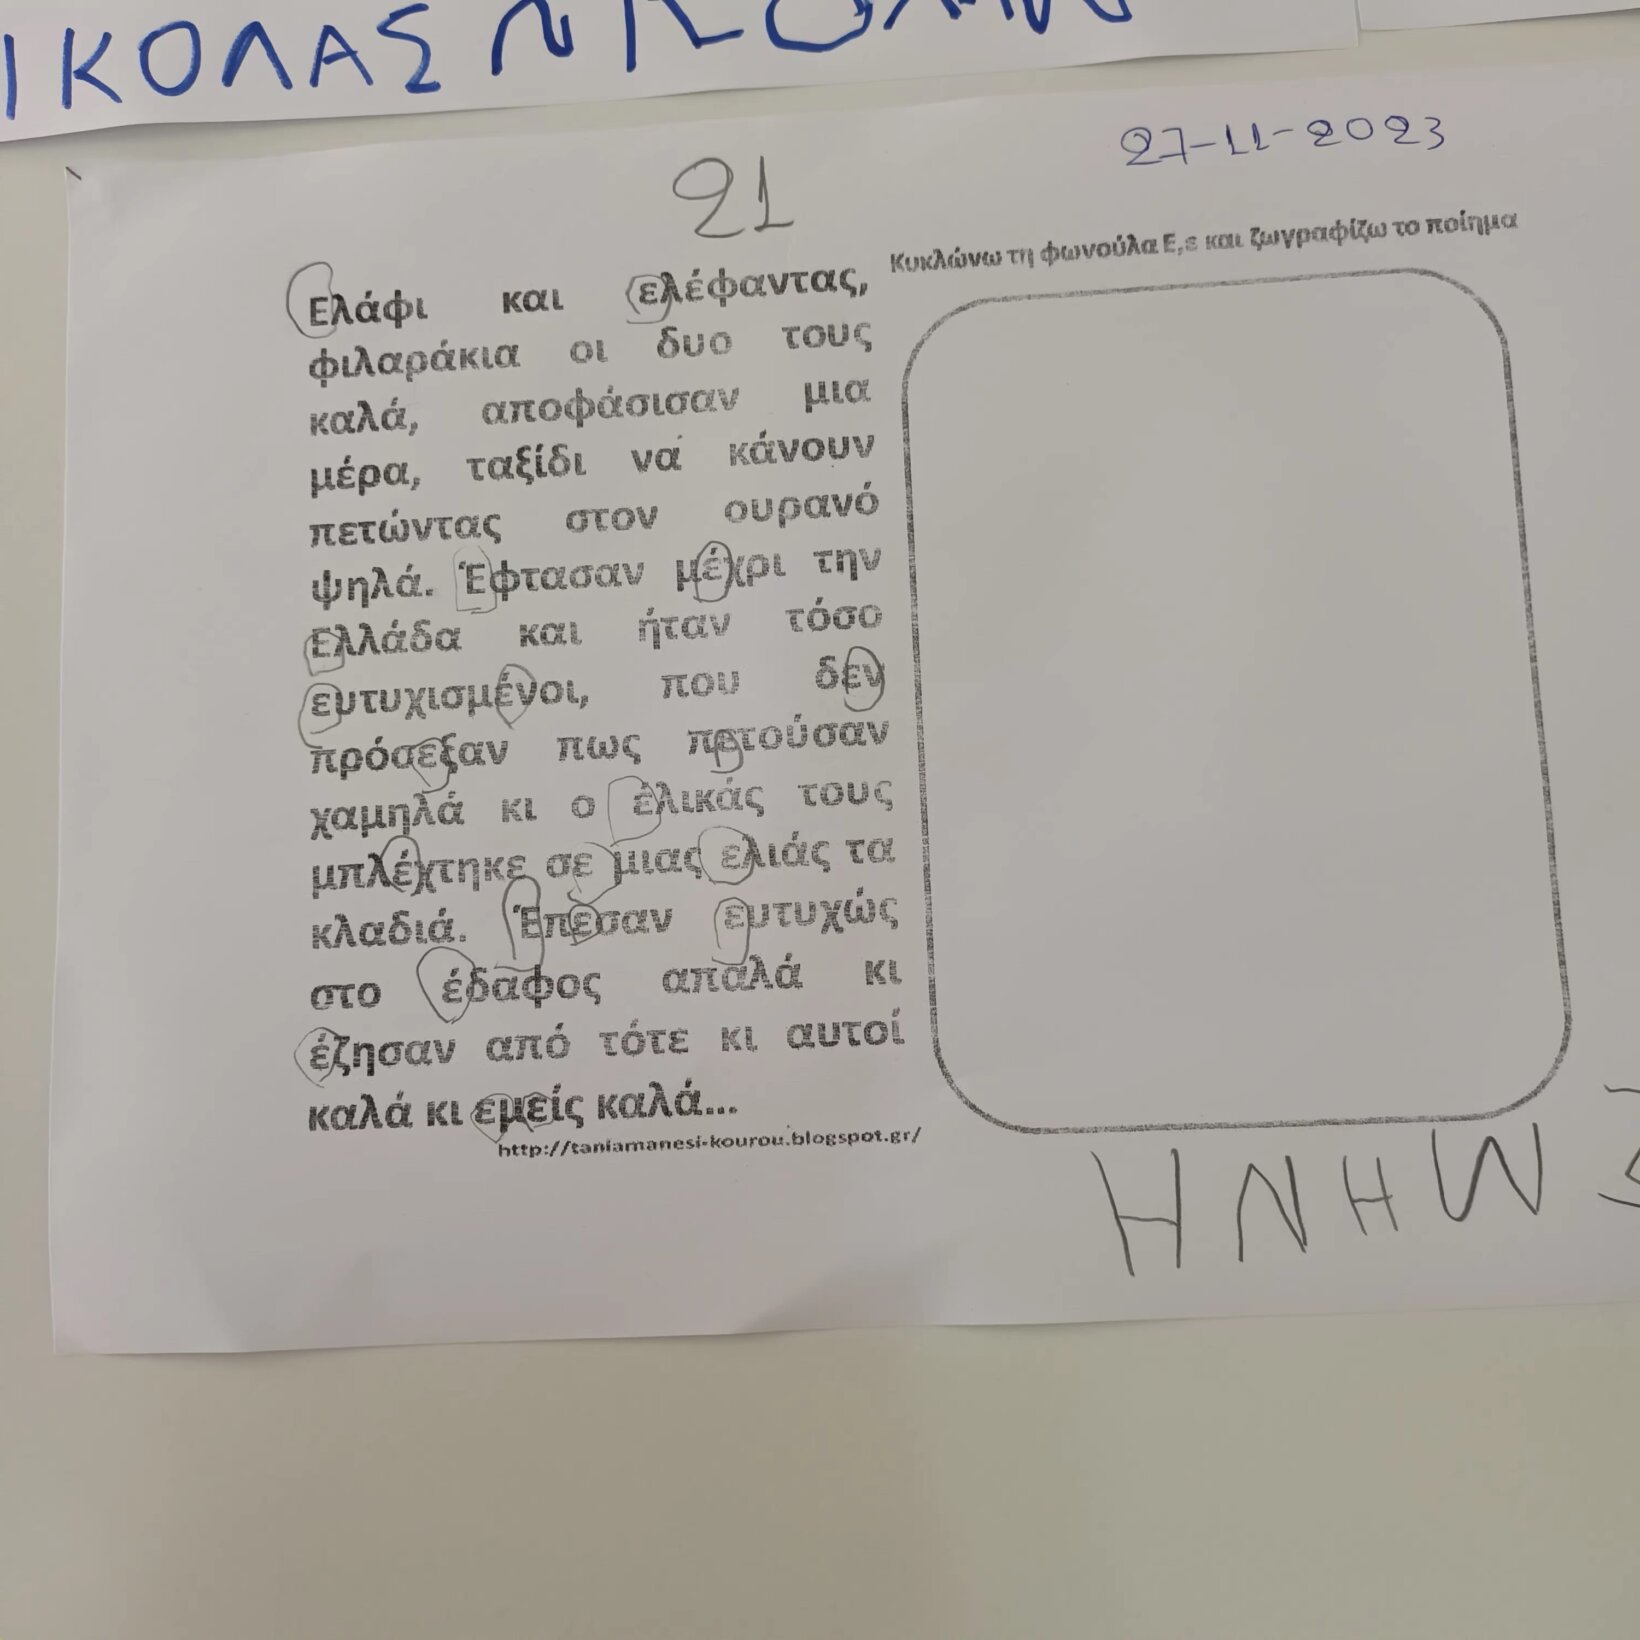 ΙΚΟΛΑΣ
27-11-2023
21
Κυκλώνω τη φωνούλα Ε,ε και ζωγραφίζω το ποίημα
Ελάφι και ελέφαντας,
φιλαράκια οι δυο τους
καλά, αποφάσισαν μια
μέρα, ταξίδι να κάνουν
πετώντας στον ουρανό
ψηλά. Έφτασαν μέχρι την
Ελλάδα και ήταν τόσο
ευτυχισμένοι, που δεν
πρόσεξαν πως πετούσαν
χαμηλά κι ο έλικάς τους
μπλέχτηκε σε μιας ελιάς τα
κλαδιά. Έπεσαν ευτυχώς
στο έδαφος απαλά κι
έζησαν από τότε κι αυτοί
καλά κι εμείς καλά...
http://taniamanesi-kourou.blogspot.gr/
ΗΝΗΜ